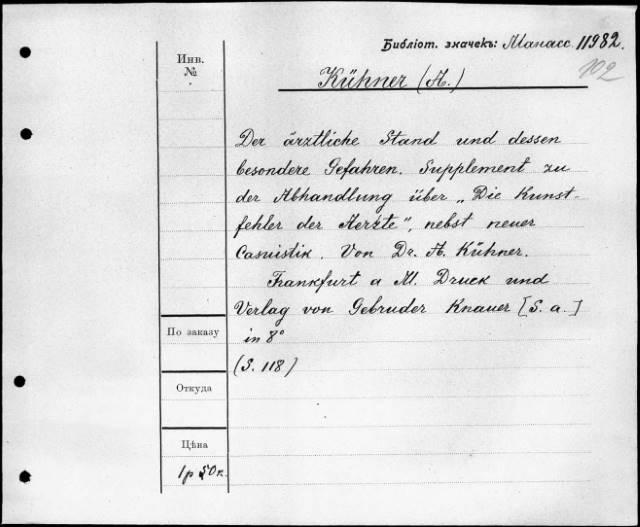 Библіот. значекъ: Манасс. 11982.
102
Инв.
№
Kühner (A.)
Der ärztliche Stand und dessen
besondere Gefahren. Supplement zu
der Abhandlung über „Die Kunst-
fehler der Aerzte", nebst neuer
Casuistik. Von Dr. A. Kühner.
Frankfurt a M. Druck und
Verlag von Gebruder Knauer [S. a.]
in 8°
(S. 118)
По заказу
Откуда
Цѣна
1р 50к.